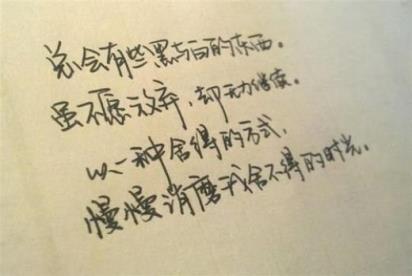 总会有些黑与白的东西。
虽不愿放弃，却无力偿使。
以一种舍得的方式，
慢慢消磨我舍不得的时光。